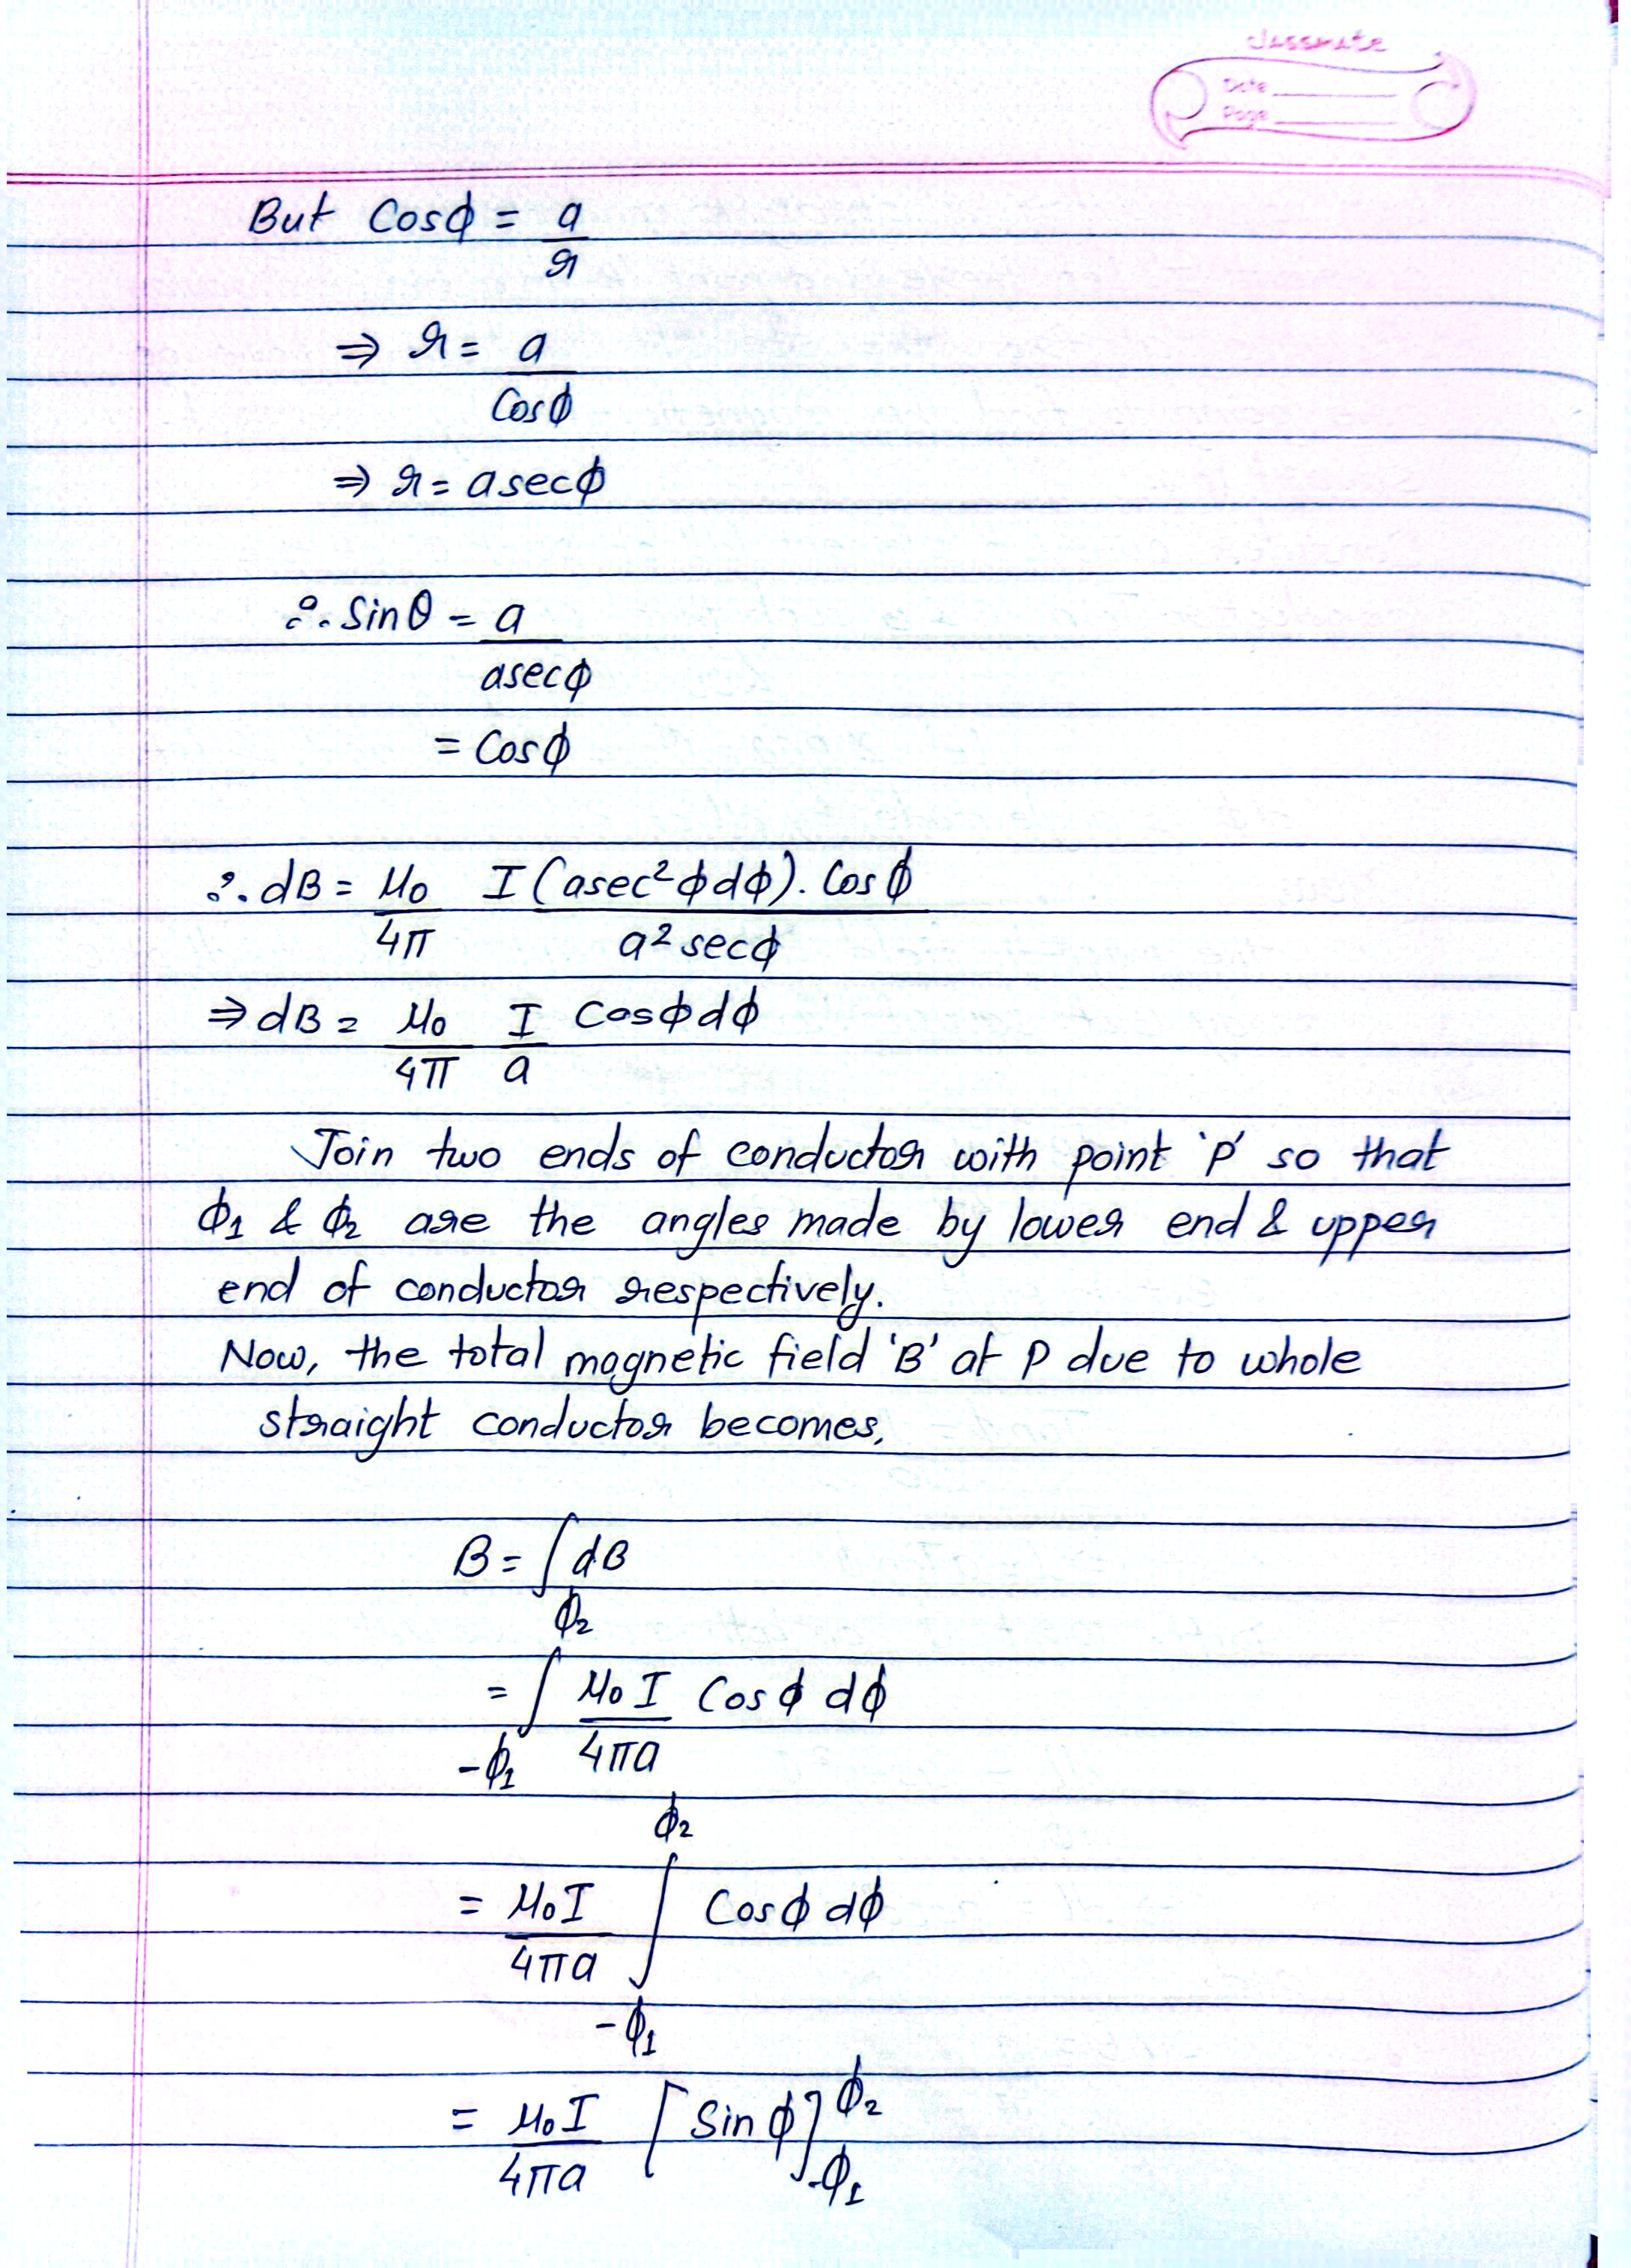 classmate
Date
Page
But Cosϕ = a/r
⇒ r = a/Cosϕ
⇒ r = asecϕ
∴ Sinθ = a/asecϕ
= Cosϕ
∴ dB = μ₀/4π I(asec²ϕdϕ). Cosϕ/a²secϕ
⇒ dB = μ₀/4π I/a Cosϕdϕ
Join two ends of conductor with point 'P' so that
ϕ₁ & ϕ₂ are the angles made by lower end & upper
end of conductor respectively.
Now, the total magnetic field 'B' at P due to whole
straight conductor becomes,
B = ∫dB
= ∫_{-ϕ₁}^{ϕ₂} μ₀I/4πa Cosϕ dϕ
= μ₀I/4πa ∫_{-ϕ₁}^{ϕ₂} Cosϕ dϕ
= μ₀I/4πa [Sinϕ]_{-ϕ₁}^{ϕ₂}